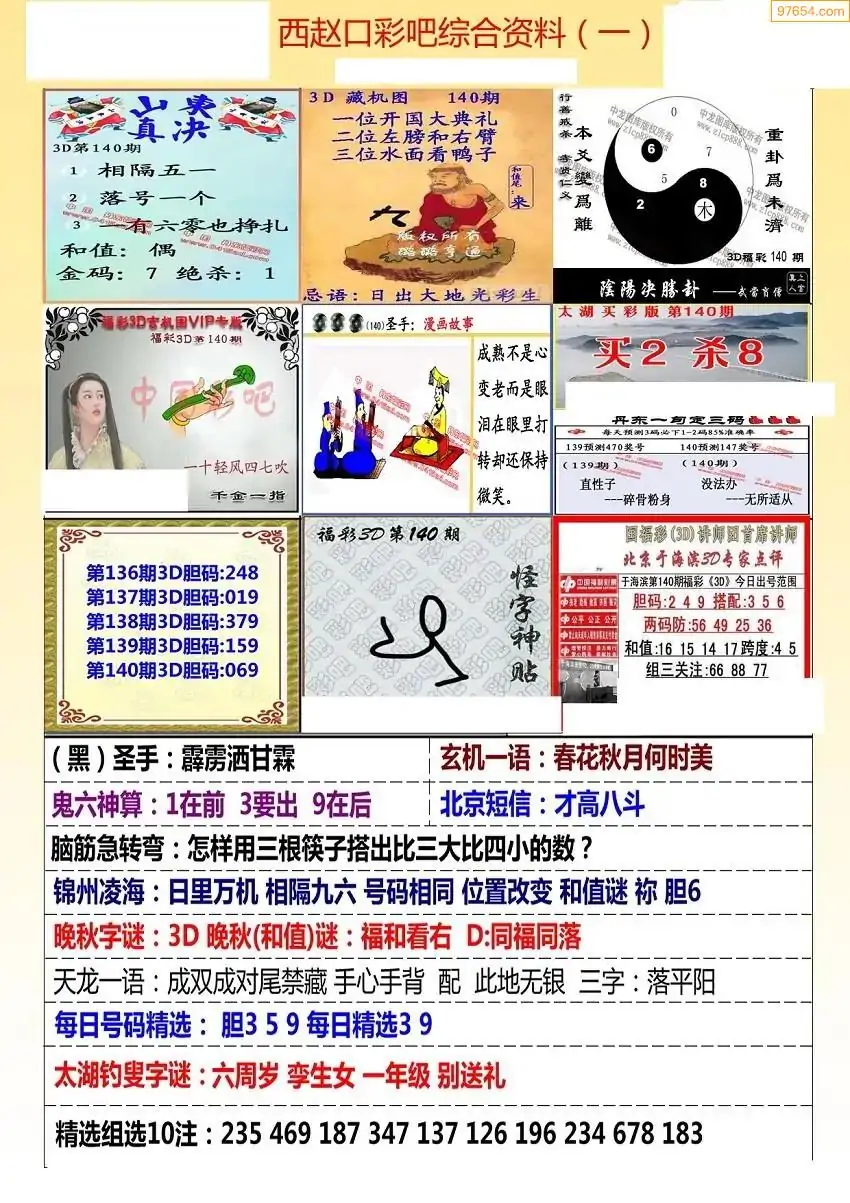 97654.com
西赵口彩吧综合资料（一）
山夷
真决
3D第140期
1 相隔五一
2 落号一个
3 一有六零也挣扎
和值：偶
金码：7 绝杀：1
3D 藏机图 140期
一位开国大典礼
二位左膀和右臂
三位水面看鸭子
和值尾：来
版权所有
忌语：日出大地光彩生
行善戒杀 孝贤仁义
本爻變爲離
重卦爲未濟
0
6
7
5
8
2
木
中龙图库版权所有
www.zlcp888.com
3D福彩 140 期
陰陽決勝卦 ——武當肖僧
福彩3D玄机图VIP专版
福彩3D第140期
中国彩吧
一十轻风四七吹
千金一指
(140)圣手：漫画故事
成熟不是心
变老而是眼
泪在眼里打
转却还保持
微笑。
太湖买彩版 第140期
买2 杀8
丹东一句定三码
每天预测3码必下1-2码85%准确率
139预测470奖号 140预测147奖号
（139期） （140期）
直性子 没法办
---碎骨粉身 ---无所适从
第136期3D胆码:248
第137期3D胆码:019
第138期3D胆码:379
第139期3D胆码:159
第140期3D胆码:069
福彩3D第140期
怪字神贴
国福彩(3D)讲师团首席讲师
北京于海滨3D专家点评
中国福利彩票
于海滨第140期福彩《3D》今日出号范围
胆码:2 4 9 搭配:3 5 6
公平 公正 公开
两码防:56 49 25 36
和值:16 15 14 17 跨度:4 5
组三关注:66 88 77
(黑)圣手：霹雳洒甘霖
玄机一语：春花秋月何时美
鬼六神算：1在前 3要出 9在后
北京短信：才高八斗
脑筋急转弯：怎样用三根筷子搭出比三大比四小的数？
锦州凌海：日里万机 相隔九六 号码相同 位置改变 和值谜 祢 胆6
晚秋字谜：3D 晚秋(和值)谜：福和看右 D:同福同落
天龙一语：成双成对尾禁藏 手心手背 配 此地无银 三字：落平阳
每日号码精选： 胆3 5 9 每日精选3 9
太湖钓叟字谜：六周岁 孪生女 一年级 别送礼
精选组选10注：235 469 187 347 137 126 196 234 678 183